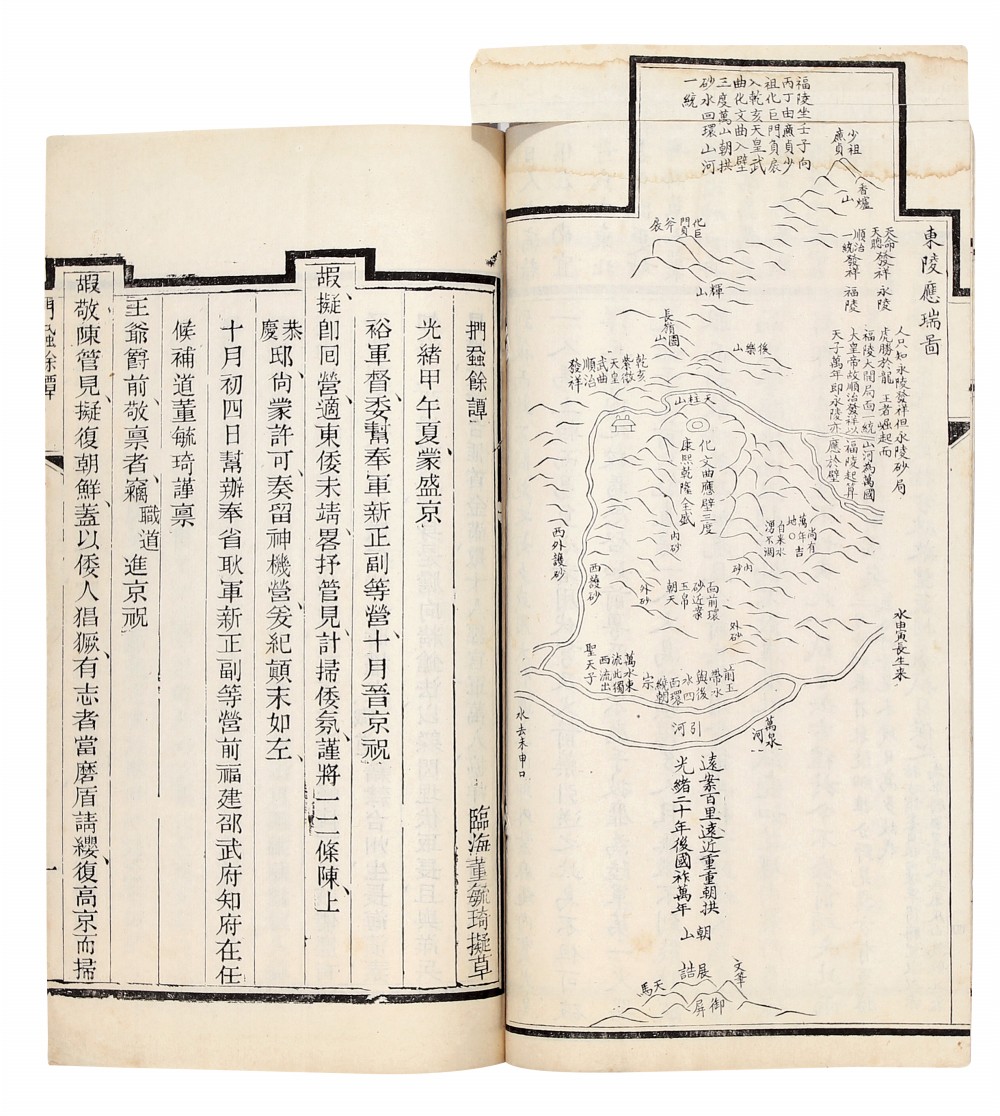 東陵應瑞圖
福陵坐壬子向
丙丁由廉貞少
祖化巨門負扆
入乾亥天皇武
曲化文曲入壁
三度萬山朝拱
砂水回環山河
一統
少祖
廉貞
香爐
山
化巨
門
斧
扆
輝山
天命發祥 永陵
天聰
順治
一統發祥 福陵
人只知永陵發祥但永陵砂局
虎勝於龍 王者崛起而
福陵大開局面一統山河為萬國
大皇帝故順治發祥以福陵起算
天子萬年即永陵亦應於壁
長嶺園
山
後樂山
乾亥
紫微
天皇
武曲
順治
發祥
天柱山
化文曲應壁三度
康熙乾隆全盛
尚有
萬年吉
地〇
白來水
湧不凋
內砂
內砂
西外護砂
西護砂
外砂
外砂
面前環
砂近案
玉帛
朝天
水由寅長生來
前玉
帶水
與後
水四
面環
繞朝
宗
萬水東
流此獨
西流出
聖天子
引河
萬泉
河
水去未申口
遠案百里遠近重重朝拱
光緒二十年後國祚萬年
朝山
文筆
展誥
天馬
御屏
捫蝨餘譚
臨海董毓琦擬草
光緒甲午夏蒙盛京
裕軍督委幫奉軍新正副等營十月晉京祝
嘏擬卽囘營適東倭未靖畧抒管見計掃倭氛謹將一二條陳上
恭
慶邸尙蒙許可奏留神機營爰紀顛末如左
十月初四日幫辦奉省耿軍新正副等營前福建邵武府知府在任
候補道董毓琦謹禀
王爺爵前敬禀者竊職道進京祝
嘏敬陳管見擬復朝鮮蓋以倭人猖獗有志者當磨盾請纓復高京而掃
捫蝨餘譚
一